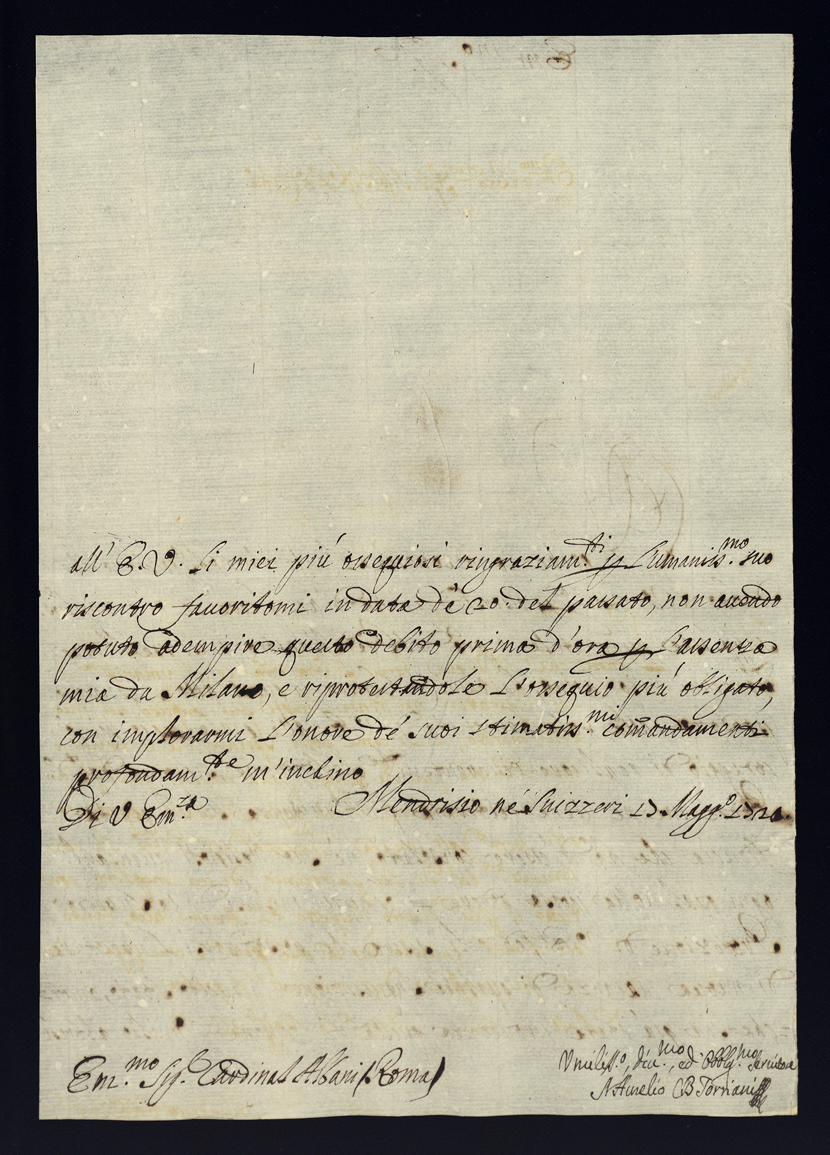 all' E. V. li miei più ossequiosi ringraziam.ti p l'umaniss.mo suo
riscontro favoritomi in data de 20. del passato, non avendo
potuto adempire questo debito prima d'ora p l'assenza
mia da Milano, e riprotestandole l'ossequio più obligato,
con implorarmi l'onore de' suoi stimatiss.mi comandamenti
profondam.te m'inchino
Di V Em.za Mendrisio né Suizzeri 13 Magg.o
Em.mo Sig.r Cardinal Albani (Roma)
Umiliss.o, div.mo, ed Obblig.mo servitore
Aurelio B Torriani